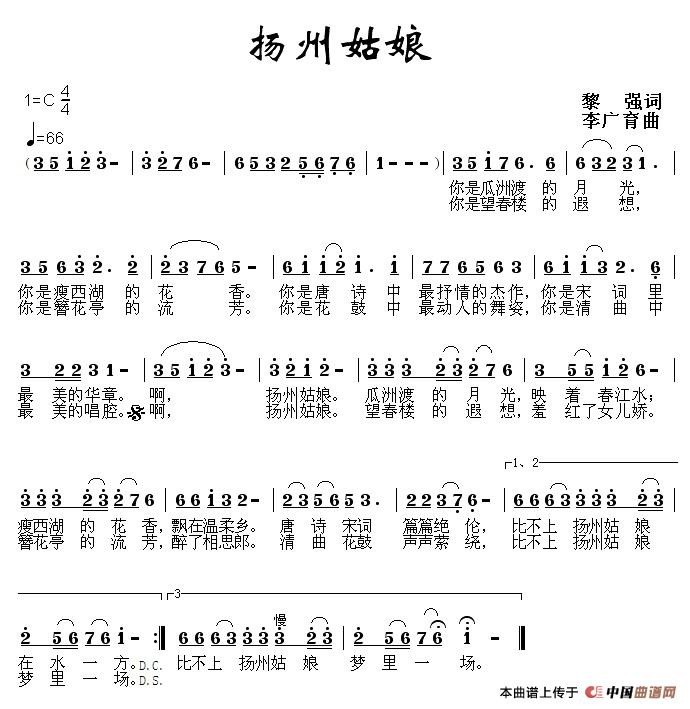 扬州姑娘
1=C 4/4
黎 强词
♩=66
李广育曲
(3 5 i 2 3 - | 3 2 7 6 - | 6 5 3 2 5 6 7 6 | 1 - - ) | 3 5 i 7 6 . 6 | 6 3 2 3 1 . |
你是瓜洲渡 的 月 光，
你是望春楼 的 遐 想，
3 5 6 3 2 . 2 | 2 3 7 6 5 - | 6 i i 2 i . | 7 7 6 5 6 6 | 6 i i 2 3 2 . 6 |
你是瘦西湖 的 花 香。 你是唐 诗 中 最抒情的杰作，你是宋 词 里
你是簪花亭 的 流 芳。 你是花 鼓 中 最动人的舞姿，你是清 曲 中
3 2 2 3 1 - | 3 5 i 2 3 - | 3 2 i 2 i - | 3 3 3 2 3 2 6 | 3 5 5 i 2 i |
最 美的华章。 啊， 扬州姑娘。 瓜洲渡 的 月 光，映 着 春江水；
最 美的唱腔。 啊， 扬州姑娘。 望春楼 的 遐 想，羞 红了女儿娇。
1、2
3 3 3 2 3 2 7 6 | 6 6 i 3 2 - | 2 3 5 6 5 3 | 2 2 2 3 7 6 - | 6 6 6 3 3 3 3 5 6 |
瘦西湖 的 花 香，飘在温柔乡。 唐 诗 宋词 篇篇绝 伦， 比不上 扬州姑 娘
簪花亭 的 流 芳，醉了相思郎。 清 曲 花鼓 声声萦 绕， 比不上 扬州姑 娘
3
慢
2 5 6 7 6 i - :| 6 6 6 3 3 3 3 2 3 | 2 5 6 7 6 i - ‖
在 水 一 方。D.C. 比不上 扬州姑 娘 梦 里 一 场。
梦 里 一 场。D.S.
本曲谱上传于 中国曲谱网